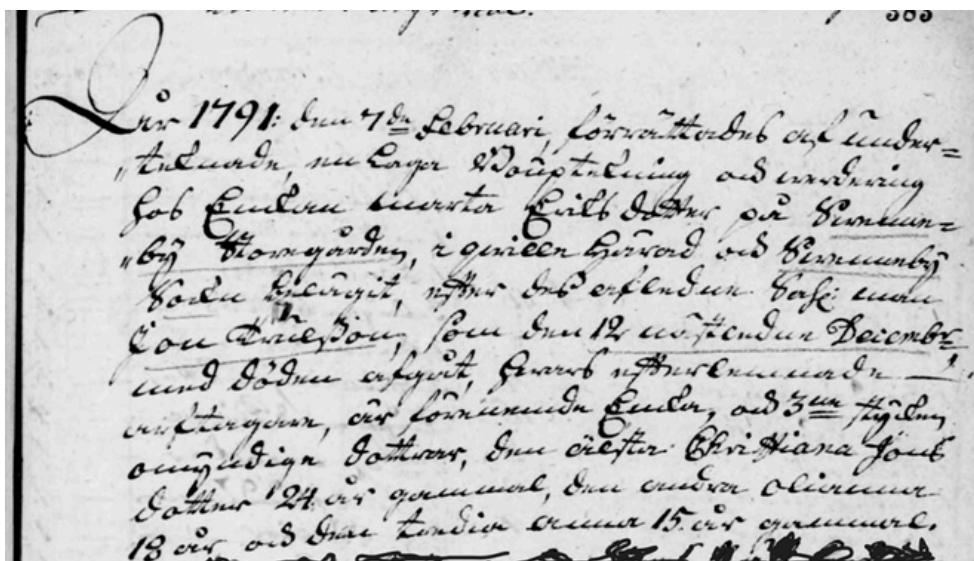 383
År 1791: den 7de Februari, förrättades af under=
"teknade, en Laga Bouptekning och werdering
hos Enkan Marta Eriks dotter på
"by Storegården, i giville härad och
Sokn belägit, efter des afledne Sahl: man
Jon, som den 12 nästledne Decembr
med döden afgåt, hvars efterlemnade
arftagare, är förenemde Enka, och 3ne stycken
omyndige dottrar, den älsta Christiana Jons
dotter 24 år gammal, den andra olianna
18 år, och den tredie anna 15 år gammal.